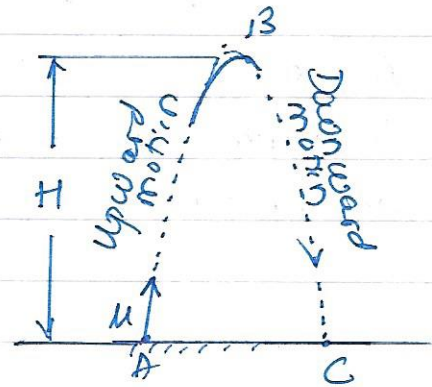 B
Upward
motion
Downward
motion
H
u
A
C